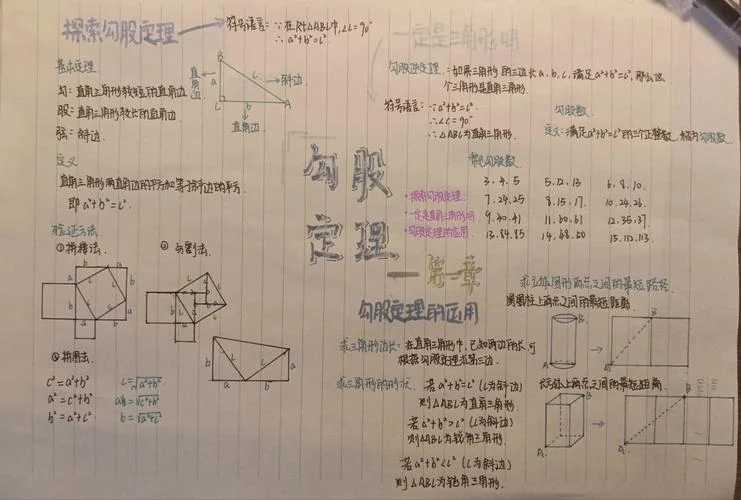 探索勾股定理
符号语言：∵在Rt△ABC中，∠C=90°
∴a²+b²=c²
基本定理
勾：直角三角形较短的直角边
股：直角三角形较长的直角边
弦：斜边
B
直角边
a
c
斜边
C
b
A
直角边
定义
直角三角形两直角边的平方和等于斜边的平方.
即a²+b²=c²
验证方法
①拼接法.
②分割法.
③拼图法.
c²=a²+b²
a²=c²+b²
b²=a²+c²
c=√a²+b²
b=√a²+c²
勾股
定理
第一章
一定是三角形吗
勾股逆定理：如果三角形的三边长a,b,c,满足a²+b²=c²,那么这
个三角形是直角三角形.
符号语言：∵a²+b²=c²
∴∠C=90°
∴△ABC为直角三角形.
勾股数
定义：满足a²+b²=c²的三个正整数,称为勾股数.
常见勾股数
3.4.5
5.12.13
6.8.10.
7.24.25
8.15.17.
10.24.26.
9.40.41
11.60.61
12.35.37.
13.84.85
14.48.50
15.112.113.
·探索勾股定理
·一定是直角三角形吗
·勾股定理的应用
勾股定理的运用
求三角形边长：在直角三角形中,已知两边的长,可
根据勾股定理求第三边.
求三角形的形状：若a²+b²=c²(c为斜边)
则△ABC为直角三角形.
若a²+b²>c²(c为斜边)
则△ABC为锐角三角形.
若a²+b²<c²(c为斜边)
则△ABC为钝角三角形.
求立体图形两点之间的最短路径.
圆柱上两点之间的最短距离.
B
A
B
A
长方体上两点之间的最短距离.
B
A
B
A